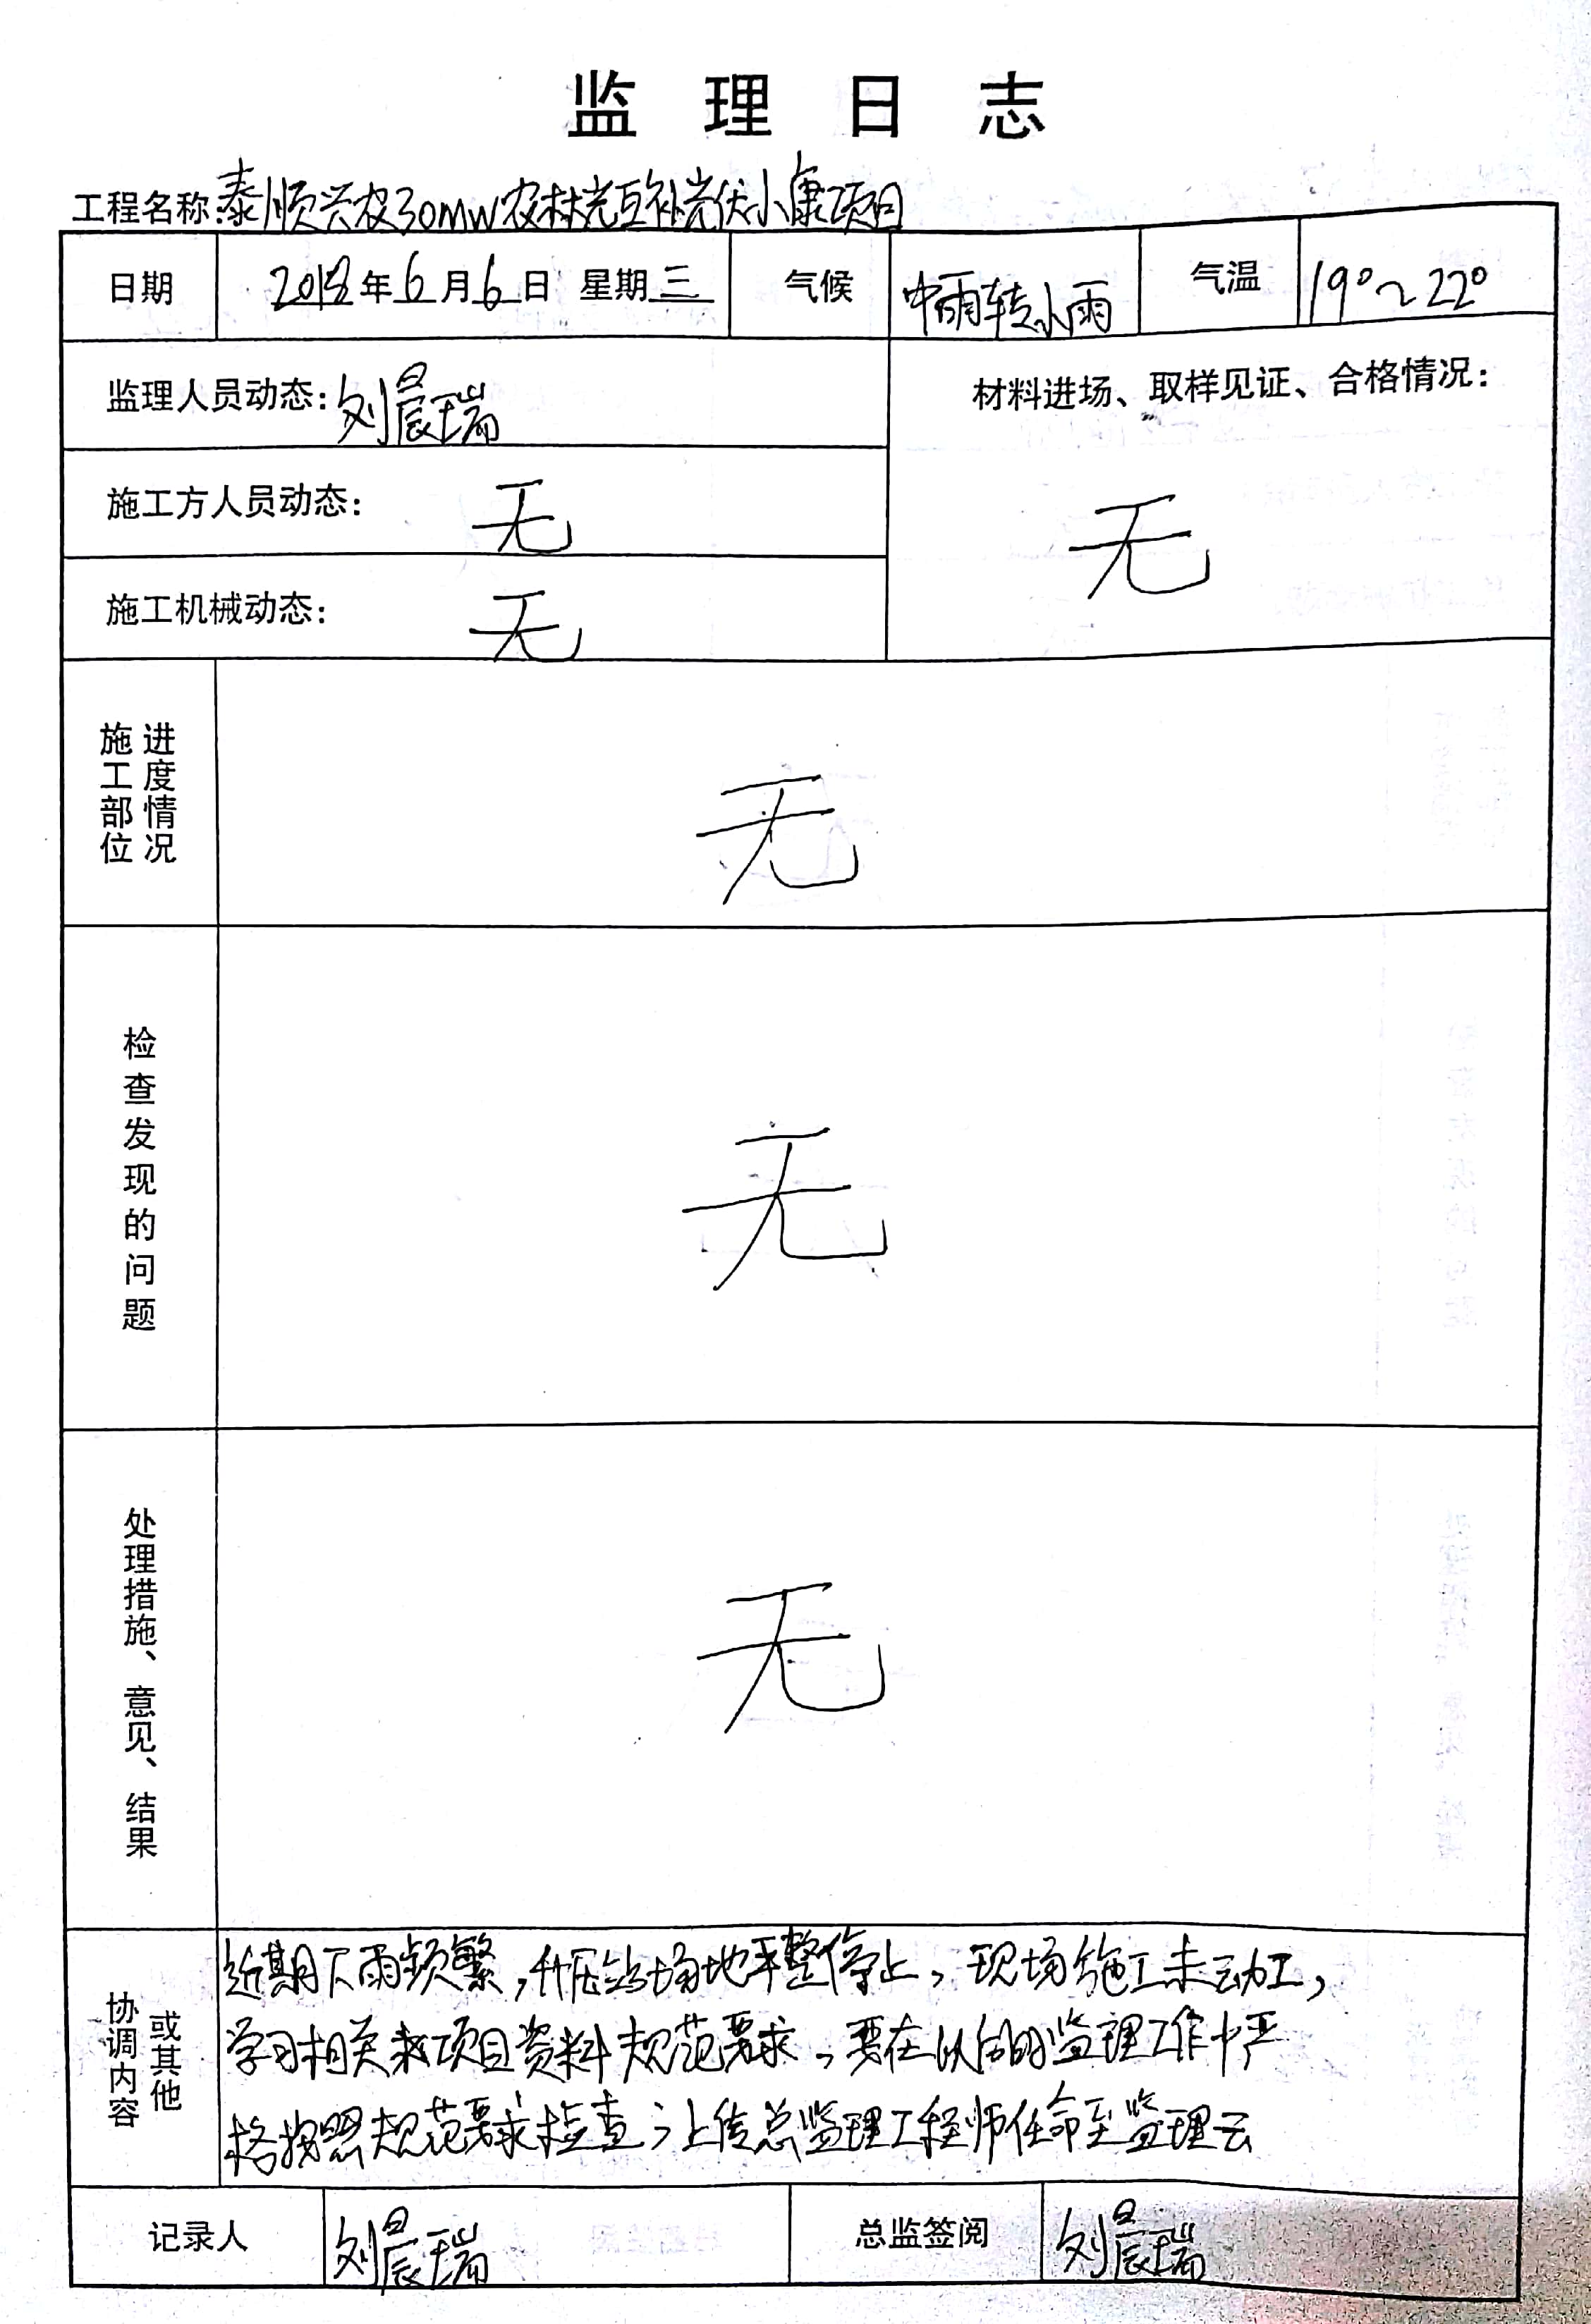 监理日志
工程名称:泰顺兴农30MW农林光互补光伏小康项目
日期 2018年6月6日 星期三 气候 中雨转小雨 气温 19°~22°
监理人员动态:刘晨瑞
材料进场、取样见证、合格情况:
施工方人员动态: 无
无
施工机械动态: 无
施工部位 进度情况
无
检查发现的问题
无
处理措施、意见、结果
无
协调内容 或其他
近期下雨频繁,升压站场地平整停止,现场施工未动工,
学习相关项目资料规范要求,要在以后的监理工作中严
格按照规范要求检查;上传总监理工程师任命至监理云
记录人 刘晨瑞 总监签阅 刘晨瑞